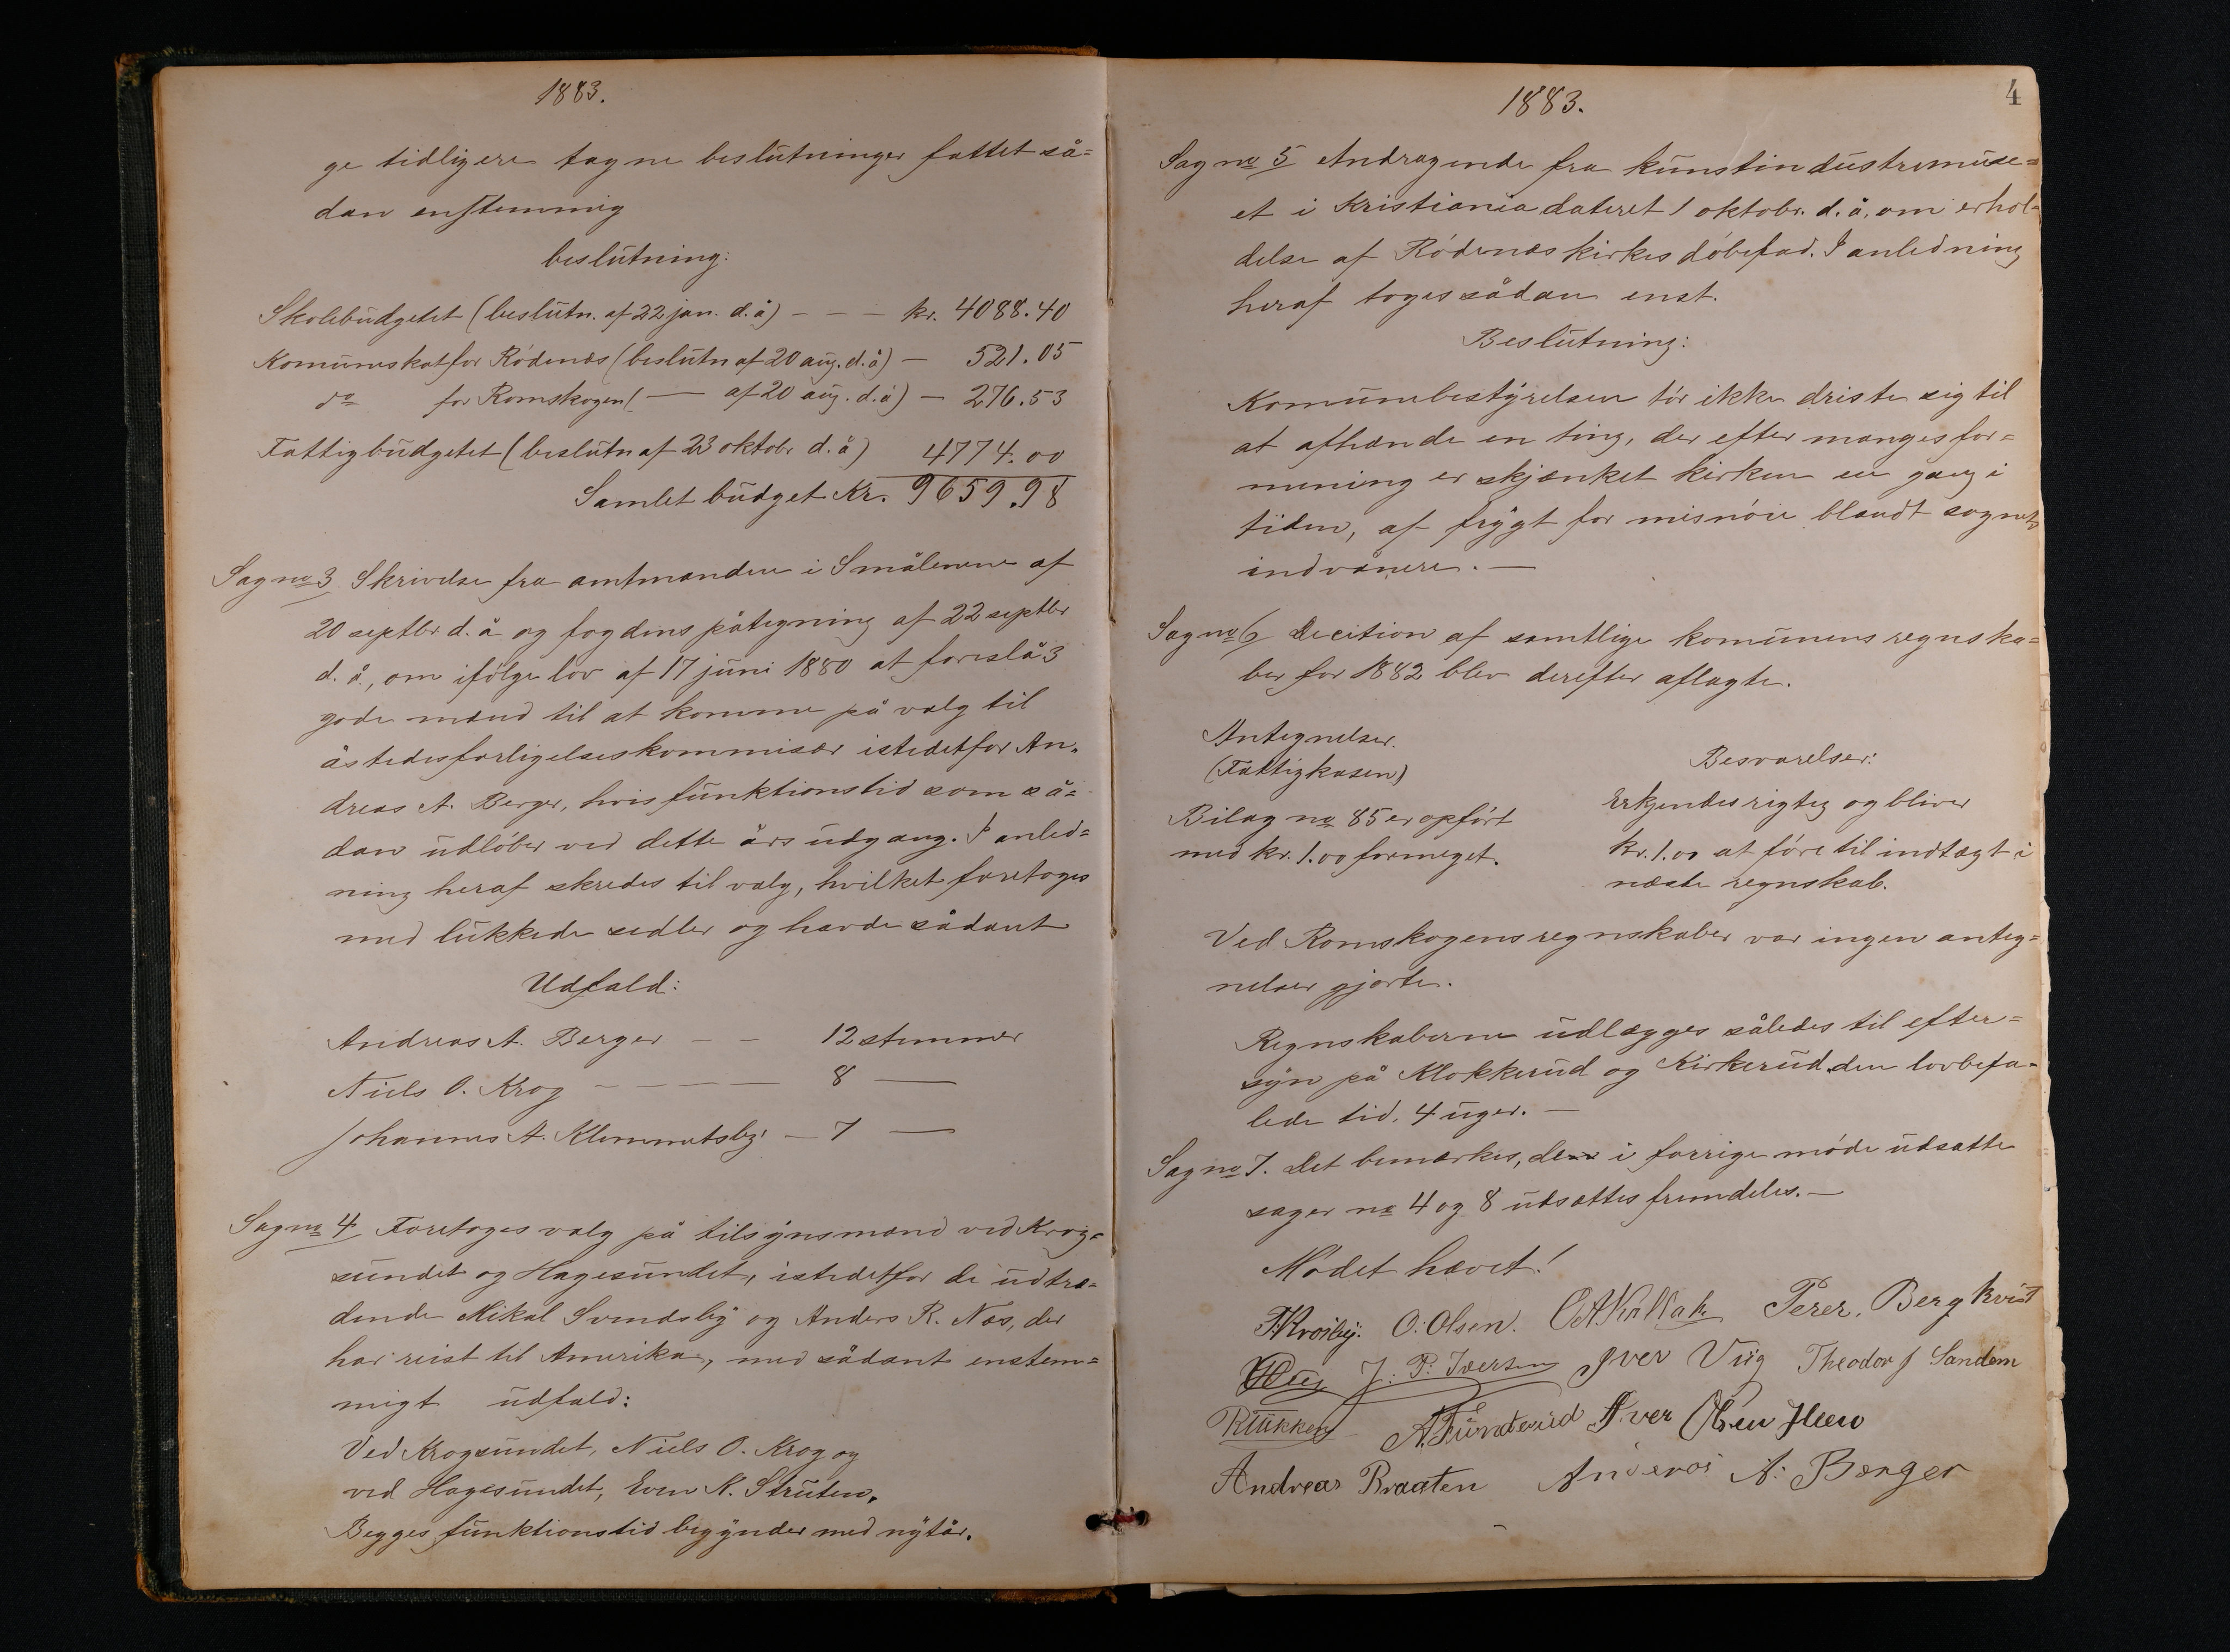 1883.
ge tidligere tagne beslutninger fattet så=
dan enstemmig
beslutning:
Skolebudgetet (beslutn. af 22 jan. d. å) - - - kr. 4088.40
Komuneskat for Rödenæs (beslutn af 20 aug. d. å) — 521.05
do for Romskogen ( — af 20 aug. d. å) — 276.53
Fattigbudgetet (beslutn af 23 oktobr d. å) 4774.00
Samlet budget Kr. 9659.98
Sag no 3 Skrivelse fra amtmanden i Smålenene af
20 septbr d. å og fogdens påtegning af 22 septbr
d. å., om ifölge lov af 17 juni 1880 at foreslå 3
gode mænd til at komme på valg til
åstedsforligelseskommisær istedetfor An=
dreas A. Berger, hvis funktionstid som så=
dan udlöber ved dette års udgang. I anled=
ning heraf skredes til valg, hvilket foretoges
med lukkede sedler og havde sådant
Udfald:
Andreas A. Berger — — 12 stemmer
Niels O. Krog - - - — 8 —
Johannes A. Klemmetsby — 7 —
Sag no 4 Foretoges valg på tilsynsmænd ved Krog=
sundet og Hagesundet, istedetfor de udtræ=
dende Mikal Svendsby og Anders R. Næs, der
har reist til Amerika, med sådant enstem=
migt udfald:
Ved Krogsundet, Niels O. Krog og
ved Hagesundet, Even N. Struten.
Begges funktionstid begynder med nytår.
4
1883.
Sag no 5 Andragende fra kunstindustrimuse=
et i Kristiania dateret 1 oktobr. d. å, om erhol=
delse af Rödenæs kirkes döbefad. I anledning
heraf toges sådan enst.
Beslutning:
Komunebestyrelsen tör ikke driste sig til
at afhænde en ting, der efter manges for=
mening er skjænket kirken en gang i
tiden, af frygt for misnöie blandt sognets
indvånere. —
Sag no 6 Decition af samtlige komunens regnska=
ber for 1882 blev derefter aflagte.
Antegnelser.
(Fattigkasen)
Bilag no 85 er opfört
med kr. 1.00 formeget.
Besvarelser:
Erkjendes rigtig og bliver
kr. 1.00 at före til indtægt i
næste regnskab.
Ved Romskogens regnskaber var ingen anteg=
nelser gjorte.
Regnskaberne udlægges således til efter=
syn på Klokkerud og Kirkerud den lovbefa=
lede tid. 4 uger. —
Sag no 7. Det bemærkes, de i forrige möde udsatte
sager no 4 og 8 udsættes fremdeles. —
Mödet hævet!
Krosby. O: Olsen. Perer, Bergkvist
J: P: Iversen Iver Viig Theodor J Sandem
A. Funderud Iver Olsen
Andreas Braaten Andreas A: Berger